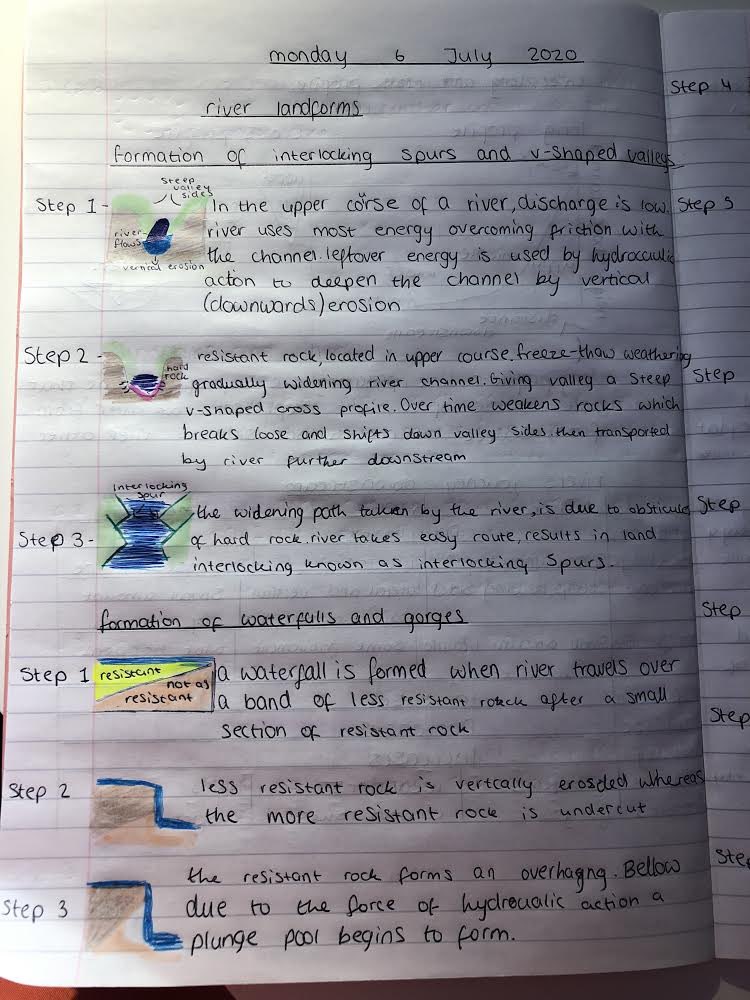 monday 6 July 2020
river landforms
formation of interlocking spurs and v-shaped valleys
Step 1 -
steep
valley
sides
river
flows
vertical erosion
In the upper course of a river, discharge is low.
river uses most energy overcoming friction with
the channel. leftover energy is used by hydrocaulic
action to deepen the channel by vertical
(downwards) erosion
Step 2 -
hard
rock
resistant rock, located in upper course. freeze-thaw weathering
gradually widening river channel. Giving valley a steep
v-shaped cross profile. Over time weakens rocks which
breaks loose and shifts down valley sides then transported
by river further downstream
Step 3 -
Interlocking
spur
the widening path taken by the river, is due to obsticule
of hard rock. river takes easy route, results in land
interlocking known as interlocking Spurs.
formation of waterfalls and gorges
Step 1
resistant
not as
resistant
a waterfall is formed when river travels over
a band of less resistant rock after a small
section of resistant rock
Step 2
less resistant rock is vertcally erosded whereas
the more resistant rock is undercut
Step 3
the resistant rock forms an overhagng. Bellow
due to the force of hydroualic action a
plunge pool begins to form.
Step 4
Step 5
Step
Step
Step
Step
Ste